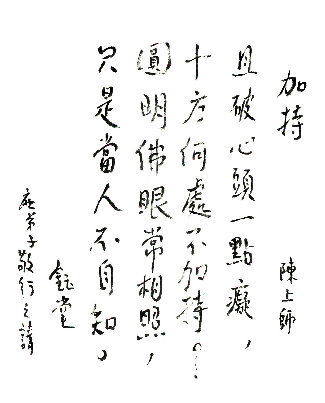 加持 陳上師
且破心頭一點癡，
十方何處不加持。
圓明佛眼常相照，
只是當人不自知。
鈺堂
應弟子敬行之請